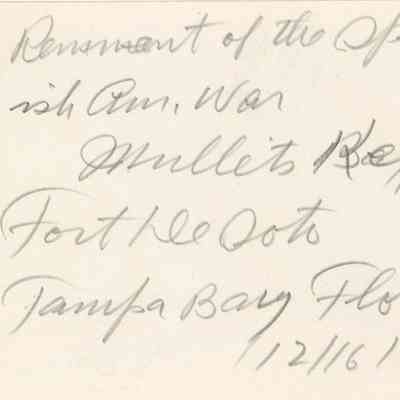 Remnant of the Spa
ish Am. War
Mullets Key
Fort De Soto
Tampa Bary Flo
12/16/